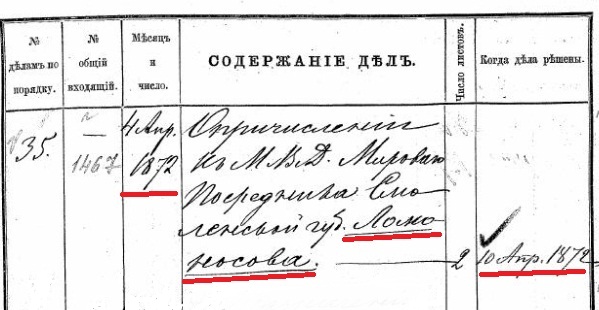 №
дѣламъ по
порядку.
№
общій
входящій.
Мѣсяцъ
и
число.
СОДЕРЖАНІЕ ДѢЛЪ.
Число листовъ.
Когда дѣла рѣшены.
35.
—
1467
4 Апр.
1872
О причисленіи
къ М.В.Д. Мироваго
Посредника Смо
ленской губ. Ломо
носова. — 2
10 Апр. 1872